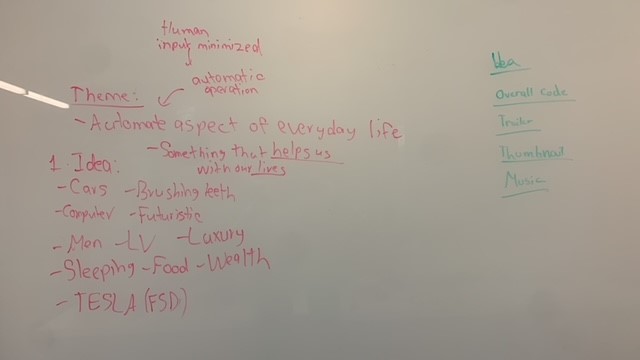 Human
input minimized
automatic
operation
Theme:
- Automate aspect of everyday life
- Something that helps us
with our lives
1. Idea:
- Cars - Brushing teeth
- Computer - Futuristic
- Men - LV - Luxury
- Sleeping - Food - Wealth
- TESLA (FSD)
Idea
Overall Code
Trailer
Thumbnail
Music